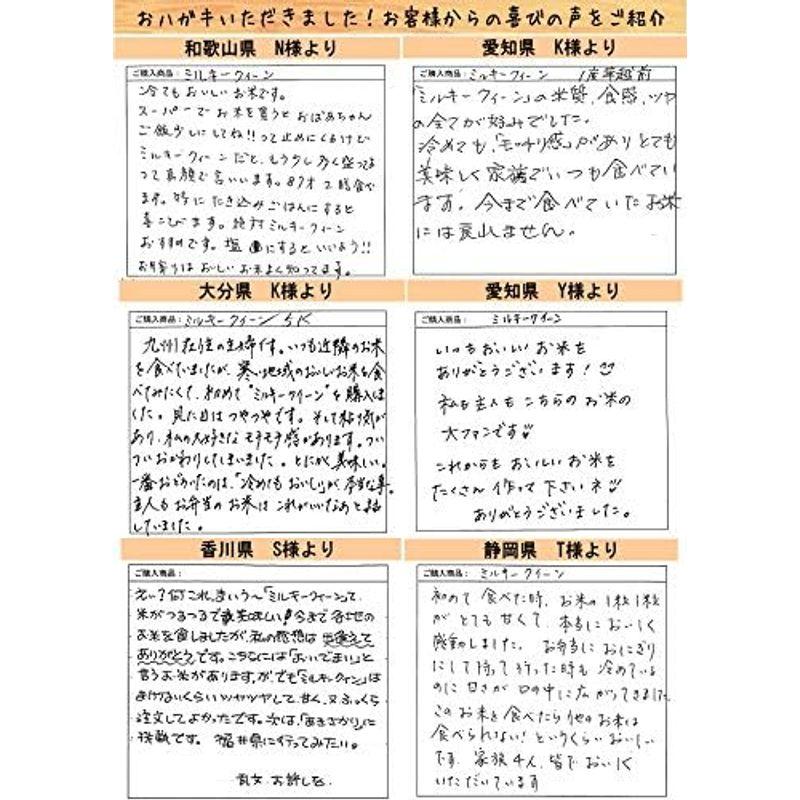 おハガキいただきました！お客様からの喜びの声をご紹介
和歌山県 N様より
ご購入商品： ミルキークィーン
冷てもおいしいお米です。
スーパーでお米を買うとおばあちゃん
ご飯少しにしてね!!って止めにくるけど
ミルキークィーンだと、もう少し多く盛ってよ
って真顔で言いいます。87才 2膳食べ
ます。特に たき込みごはんにすると
喜こびます。絶対ミルキークィーン
おすすめです。塩 にするといいよう!!
お年寄りはおいしいお米よく知ってます。
愛知県 K様より
ご購入商品： ミルキークィーン 産華越前
「ミルキークィーン」の米質、食感、ツヤ
の全てが好みでした。
冷めても、「モッチリ感」がありとても
美味しく家族でいつも食べてい
ます。今まで食べていたお米
には戻れません。
大分県 K様より
ご購入商品： ミルキークィーン 5K
九州在住の主婦です。いつも近隣のお米
を食べていましたが、寒い地域のおいしいお米を食
べてみたくて、初めて"ミルキークィーン"を購入しま
した。見た目はつやつやです。そして粘り気が
あり、私の大好きなモチモチ感があります。つい
ついおかわりしてしまいました。とにかく美味しい。
一番おどろいたのは、「冷めてもおいしい」が、本当な事。
主人もお弁当のお米はこれがいいなあと話
していました。
愛知県 Y様より
ご購入商品： ミルキークイーン
いつもおいしいお米を
ありがとうございます！
私も主人もこちらのお米の
大ファンです♡
これからもおいしいお米を
たくさん作って下さいネ♡
ありがとうございました。
香川県 S様より
ご購入商品：
えっ？何これ、まいう〜「ミルキークィーン」って、
米がつるつるで美味しい！今まで各地の
お米を食しましたが、私の感想は出逢えて
ありがとうです。こちらには「おいでまい」と
言うお米がありますが、でも「ミルキークィン」は
まけないくらいツヤツヤして、甘く、又ふっくら
注文してよかったです。次は、「あきさかり」に
挑戦です。 福井県に行ってみたい。
乱文、お許しを、
静岡県 T様より
ご購入商品： ミルキークイーン
初めて食べた時、お米の1粒1粒
がとても甘くて、本当においしく
感動しました。 お弁当におにぎり
にして持って行った時も冷めている
のに甘さが口の中に広がってきました
このお米を食べたら他のお米は
食べられない！というくらいおいしい
です。家族4人、皆でおいしく
いただいています